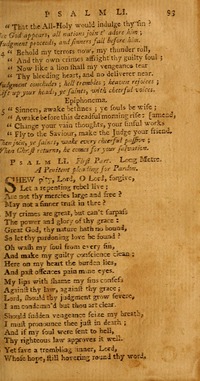 PSALM LI. 93
"That the All-Holy would indulge thy sin?
See God appears, all nations join t' adore him;
Judgment proceeds, and sinners fall before him.
"Behold my terrors now, my thunder roll,
"And thy own crimes affright thy guilty soul;
"Now like a lion shall my vengeance tear
"Thy bleeding heart, and no deliverer near.
Judgment concludes; hell trembles; heaven rejoices;
Lift up your heads, ye saints, with cheerful voices.
Epiphonema.
"Sinners, awake betimes; ye fools be wise;
"Awake before this dreadful morning rise; [amend,
"Change your vain thoughts, your sinful works
"Fly to the Saviour, make the Judge your friend.
Then join, ye saints, wake every cheerful passion;
When Christ returns, he comes for your salvation.
PSALM LI. First Part. Long Metre.
A Penitent pleading for Pardon.
SHEW pity, Lord, O Lord, forgive,
Let a repenting rebel live;
Are not thy mercies large and free?
May not a sinner trust in thee?
My crimes are great, but can't surpass
The power and glory of thy grace;
Great God, thy nature hath no bound,
So let thy pardoning love be found!
Oh wash my soul from every sin,
And make my guilty conscience clean;
Here on my heart the burden lies,
And past offences pain mine eyes.
My lips with shame my sins confess
Against thy law, against thy grace;
Lord, should thy judgment grow severe,
I am condemn'd but thou art clear.
Should sudden vengeance seize my breath,
I must pronounce thee just in death;
And if my soul were sent to hell,
Thy righteous law approves it well.
Yet save a trembling sinner, Lord,
Whose hope, still hovering round thy word,